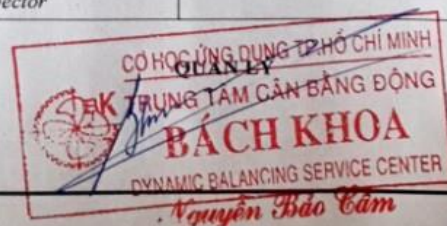 ector
CƠ HỌC ỨNG DỤNG TP.HỒ CHÍ MINH
QUẢN LÝ
TRUNG TÂM CÂN BẰNG ĐỘNG
BÁCH KHOA
DYNAMIC BALANCING SERVICE CENTER
Nguyễn Bảo Cẩm